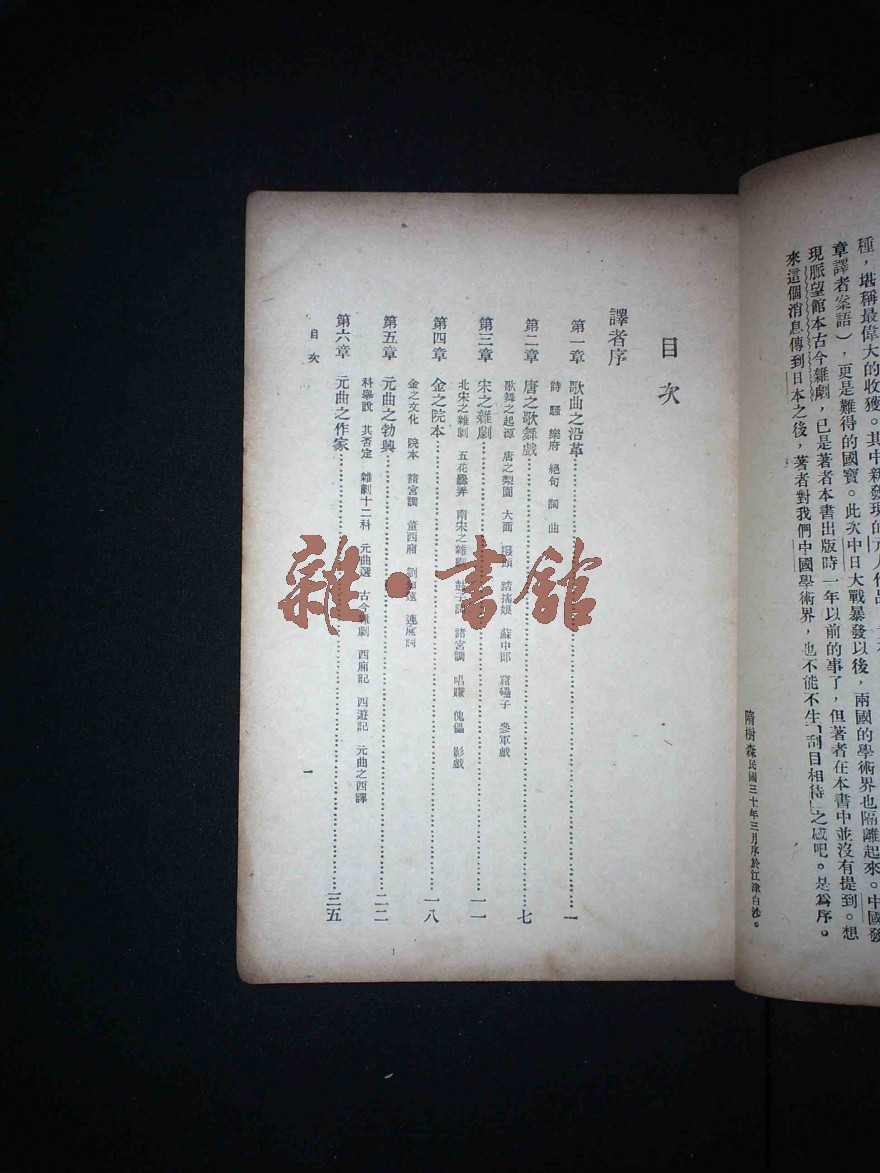 種，堪稱最偉大的收獲。其中新發現的元人作品
章譯者案語），更是難得的國寶。此次中日大戰暴發以後，兩國的學術界也隔離起來。中國發
現脈望館本古今雜劇，已是著者本書出版時一年以前的事了，但著者在本書中並沒有提到。想
來這個消息傳到日本之後，著者對我們中國學術界，也不能不生「刮目相待」之感吧。是爲序。
隋樹森民國三十年三月序於江津白沙。
目次
譯者序
第一章 歌曲之沿革……一
詩 騷 樂府 絕句 詞 曲
第二章 唐之歌舞戲……七
歌舞之起源 唐之梨園 大面 撥頭 踏搖娘 蘇中郎 窟礧子 參軍戲
第三章 宋之雜劇……一一
北宋之雜劇 五花爨弄 南宋之雜劇 鼓子詞 諸宮調 唱賺 傀儡 影戲
第四章 金之院本……一八
金之文化 院本 諸宮調 董西廂 劉知遠 連廂詞
第五章 元曲之勃興……二二
科舉說 其否定 雜劇十二科 元曲選 古今雜劇 西廂記 西遊記 元曲之西譯
第六章 元曲之作家……三五
目次
一
雜·書館